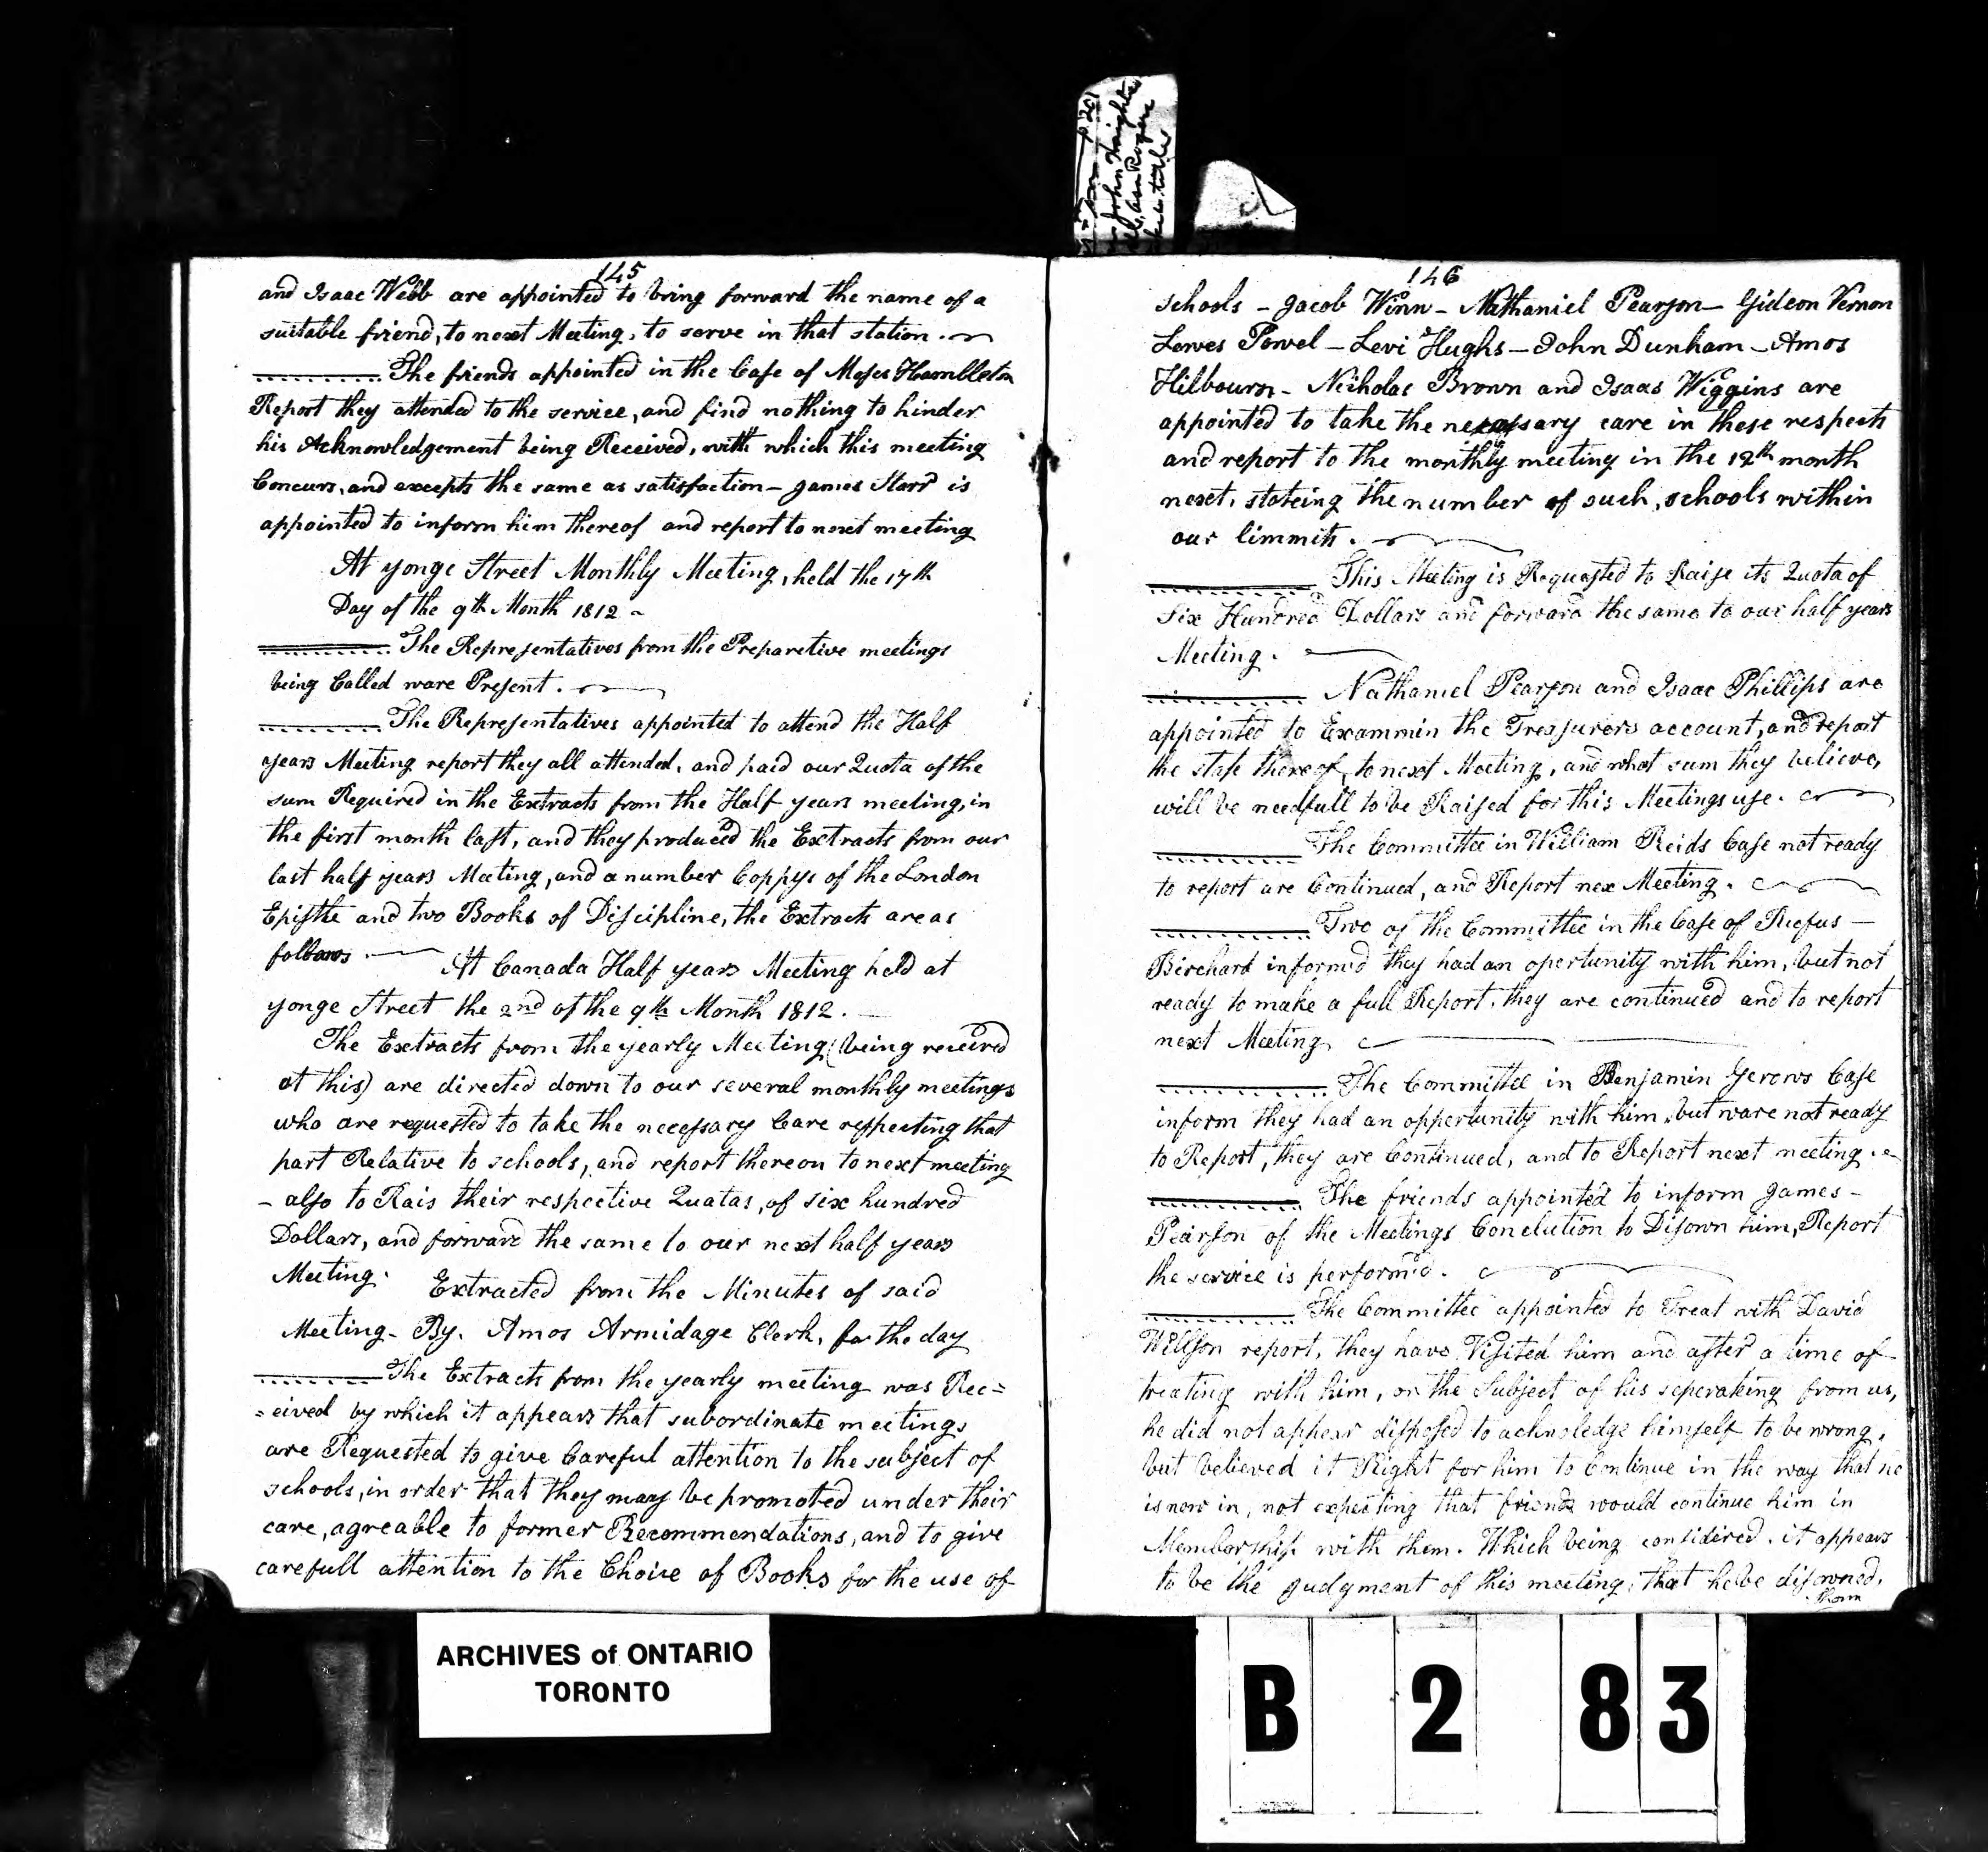 145
and Isaac Webb are appointed to bring forward the name of a
suitable friend, to next Meeting, to serve in that station.
The friends appointed in the Case of Moses Hambleton
Report they attended to the service, and find nothing to hinder
his Acknowledgement being Received, with which this meeting
Concurs, and excepts the same as satisfaction - James Starr is
appointed to inform him thereof and report to next meeting
At yonge Street Monthly Meeting, held the 17th
Day of the 9th Month 1812 -
The Representatives from the Preparetive meetings
being Called ware Present.
The Representatives appointed to attend the Half
years Meeting report they all attended, and paid our Quota of the
sum Required in the Extracts from the Half years meeting, in
the first month last, and they produced the Extracts from our
last half years Meeting, and a number Coppys of the London
Epistle and two Books of Discipline, the Extracts are as
follows. At Canada Half years Meeting held at
yonge Street the 2nd of the 9th Month 1812.
The Extracts from the yearly Meeting (being received
at this) are directed down to our several monthly meetings
who are requested to take the necessary Care respecting that
part Relative to schools, and report thereon to next meeting
- also to Rais their respective Quatas, of six hundred
Dollars, and forward the same to our next half years
Meeting. Extracted from the Minutes of said
Meeting - By. Amos Armidage Clerk, for the day
The Extracts from the yearly meeting was Rec=
=eived by which it appears that subordinate meetings
are Requested to give Careful attention to the subject of
schools, in order that they may be promoted under their
care, agreable to former Recommendations, and to give
carefull attention to the Choise of Books for the use of
146
schools - Jacob Winn - Nathaniel Pearson - Gideon Vernon
Lewes Powel - Levi Hughs - John Dunham - Amos
Hilbourn - Neiholas Brown and Isaac Wiggins are
appointed to take the necessary care in these respects
and report to the monthly meeting in the 12th month
next, stateing the number of such, schools within
our limmits.
This Meeting is Requested to Raise its Quota of
Six Hundred Dollars and forward the same to our half years
Meeting.
Nathaniel Pearson and Isaac Phillips are
appointed to Exammin the Treasurers account, and report
the state thereof, to next Meeting, and what sum they believe,
will be needfull to be Raised for this Meetings use.
The Committee in William Reids Case not ready
to report are Continued, and Report nex Meeting.
Two of the Committee in the Case of Rufus -
Birchard informed they had an opertunity with him, but not
ready to make a full Report. they are continued and to report
next Meeting
The Committee in Benjamin Gerows Case
inform they had an oppertunity with him but ware not ready
to Report, they are Continued, and to Report next meeting.
The friends appointed to inform James -
Pearson of the Meetings Conclution to Disown him, Report
the service is performed.
The Committee appointed to Treat with David
Willson report, they have Visited him and after a time of
treating with him, on the Subject of his seperateing from us,
he did not appear disposed to acknoledge himself to be wrong,
but believed it Right for him to Continue in the way that he
is now in, not expecting that friends would continue him in
Membership with them. Which being considered. it appears
to be the Judgment of this meeting, that he be disowned,
Thom
John
p 201
ARCHIVES of ONTARIO
TORONTO
B 2 83